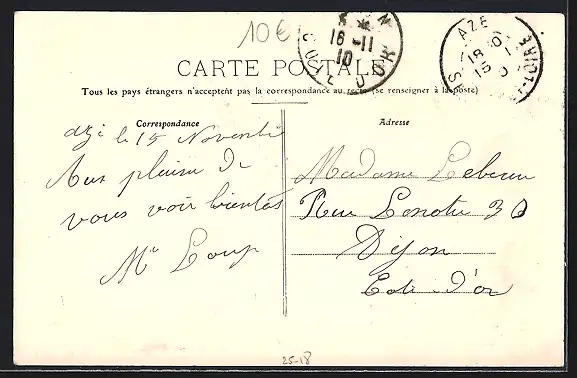 10€
16-11
10
AZE
18 10
15
CARTE POSTALE
Tous les pays étrangers n'acceptent pas la correspondance au recto (se renseigner à la poste)
Correspondance
Azé le 15 Novembre
Aux plaisir de
vous voir bientôt
Mme Loup
Adresse
Madame Lebeau
Rue Lenotre 30
Dijon
Cote d'or
25-18